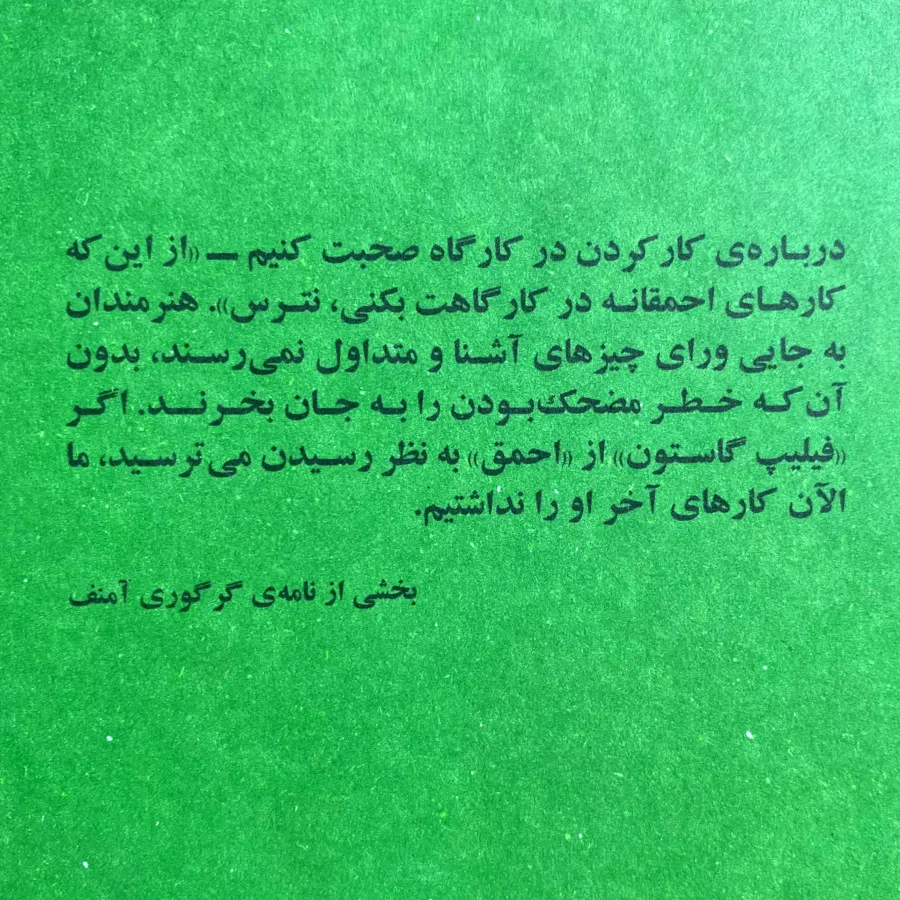 درباره‌ی کار کردن در کارگاه صحبت کنیم ــ «از این که
کارهای احمقانه در کارگاهت بکنی، نترس». هنرمندان
به جایی ورای چیزهای آشنا و متداول نمی‌رسند، بدون
آن که خطر مضحک‌بودن را به جان بخرند. اگر
«فیلیپ گاستون» از «احمق» به نظر رسیدن می‌ترسید، ما
الآن کارهای آخر او را نداشتیم.
بخشی از نامه‌ی گرگوری آمنف